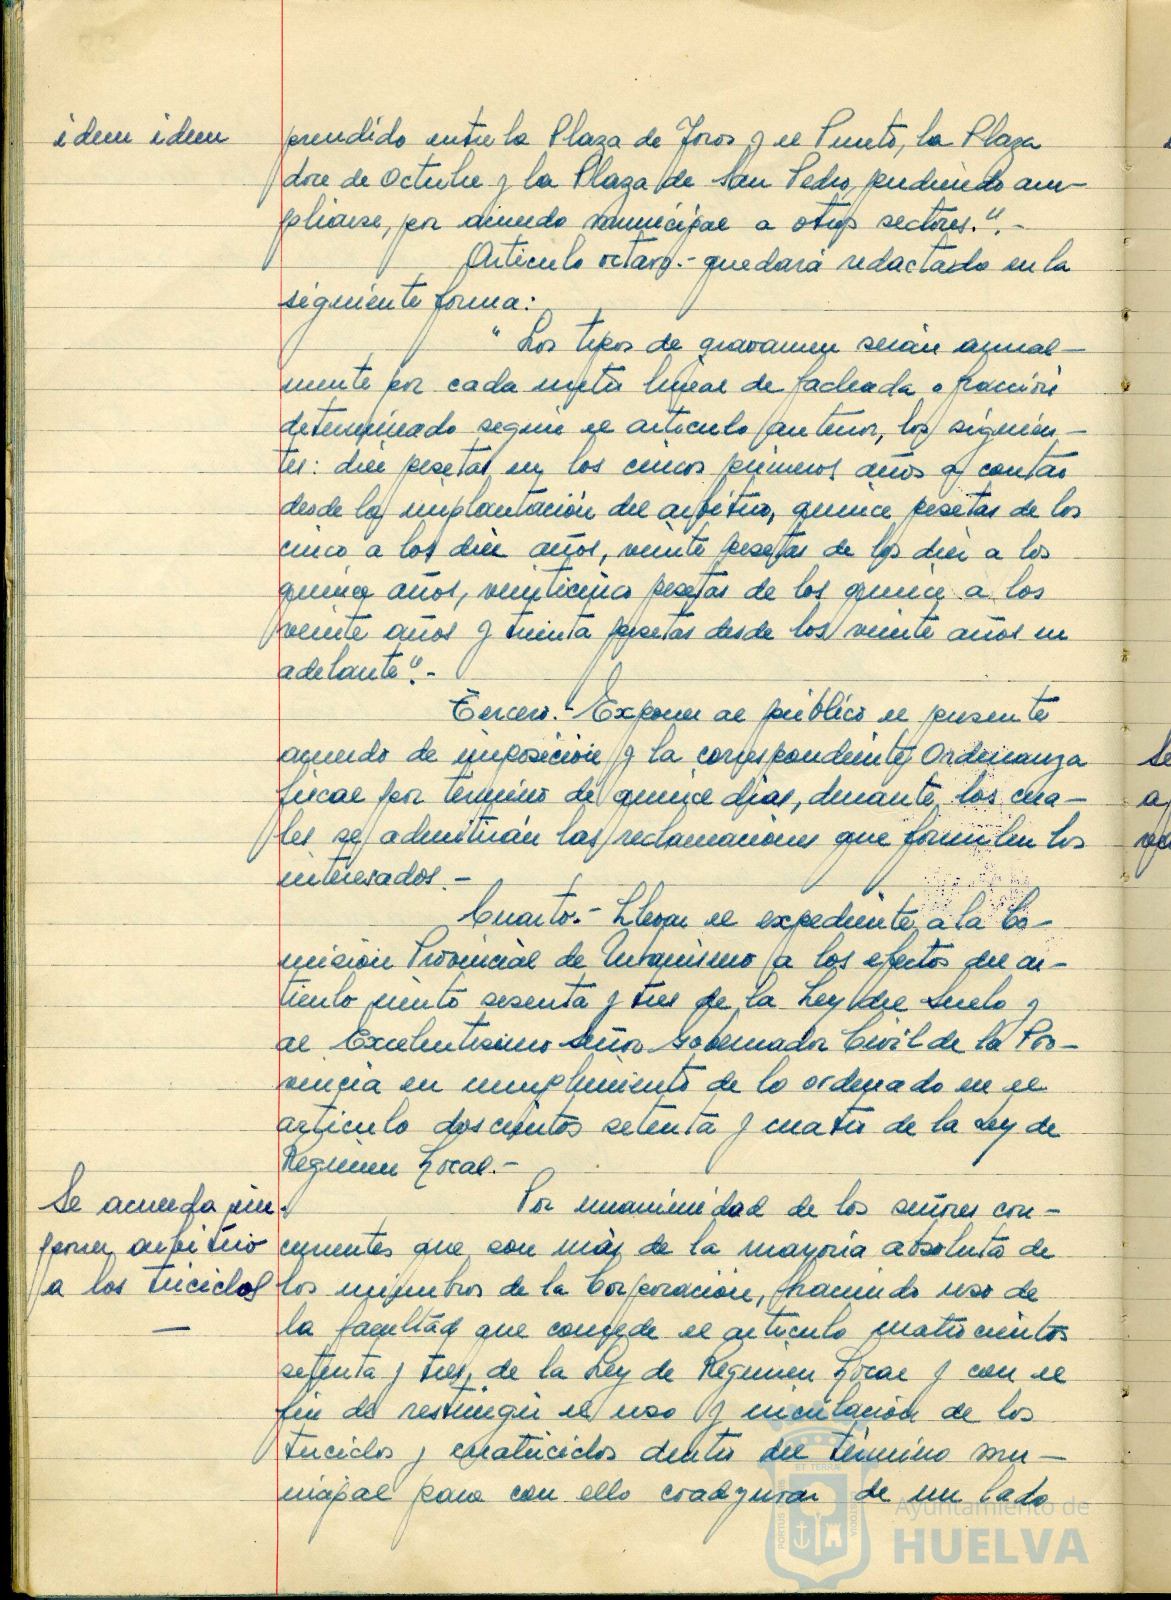 idem idem
prendido entre la Plaza de Toros y el Puerto, la Plaza
doce de Octubre y la Plaza de San Pedro, pudiendo am-
pliarse, por acuerdo municipal a otros sectores.".-
Articulo octavo.- quedará redactado en la
siguiente forma:
" Los tipos de gravamen serán anual-
mente por cada metro lineal de fachada o fracción
determinado según el articulo anterior, los siguien-
tes: diez pesetas en los cincos primeros años a contar
desde la implantación del arbitrio, quince pesetas de los
cinco a los diez años, veinte pesetas de los diez a los
quince años, veinticinco pesetas de los quince a los
veinte años y treinta pesetas desde los veinte años en
adelante".-
Tercero.- Exponer al público el presente
acuerdo de imposición y la correspondiente Ordenanza
fiscal por termino de quince dias, durante los cua-
les se admitirán las reclamaciones que formulen los
interesados.-
Cuarto.- Llevar el expediente a la Co-
misión Provincial de Urbanismo a los efectos del ar-
ticulo ciento sesenta y tres de la Ley del Suelo y
al Excelentisimo Señor Gobernador Civil de la Pro-
vincia en cumplimiento de lo ordenado en el
articulo doscientos setenta y cuatro de la Ley de
Regimen Local.-
Se acuerda im-
poner arbitrio
a los triciclos
—
Por unanimidad de los señores con-
currentes que son más de la mayoría absoluta de
los miembros de la Corporación, haciendo uso de
la facultad que concede el articulo cuatrocientos
setenta y tres, de la Ley de Regimen Local y con el
fin de restringir el uso y circulación de los
triciclos y cuatriciclos dentro del término mu-
nicipal para con ello coadyuvar de un lado
Se
a
ET TERRAE
PORTUS
CUSTODIA
Ayuntamiento de
HUELVA